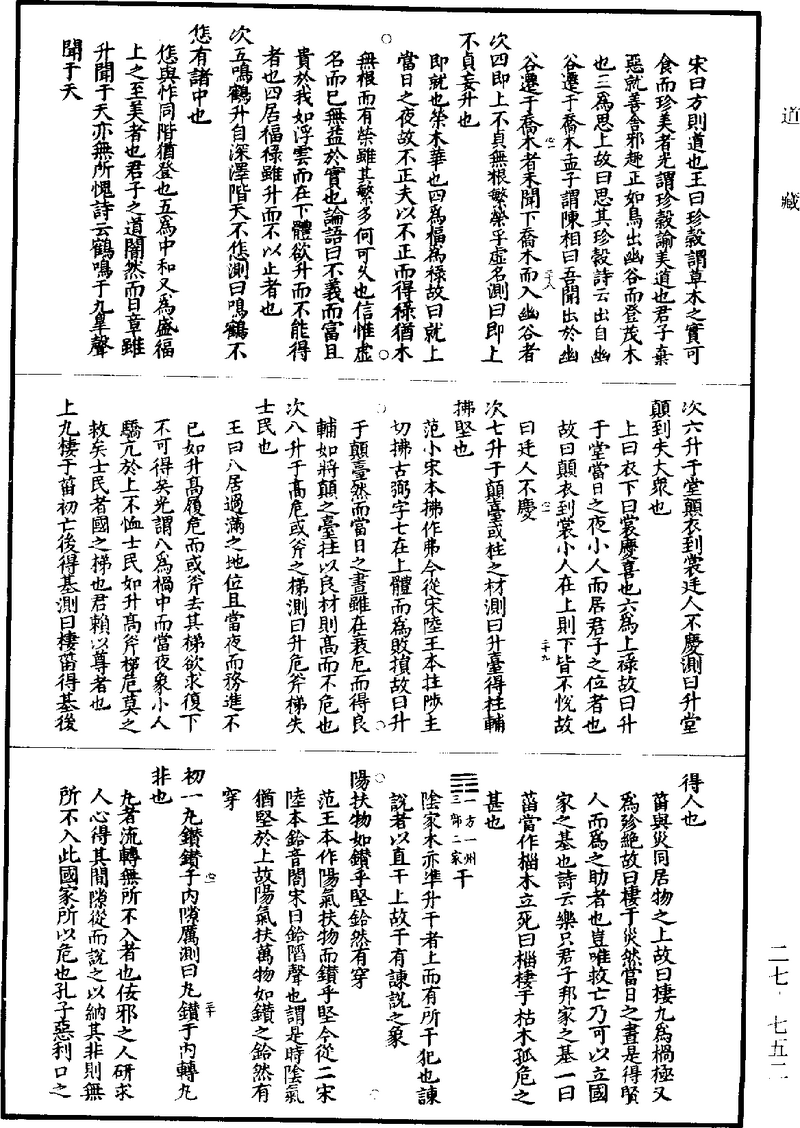 道藏
宋曰方則道也王曰珍穀謂草木之實可
食而珍美者光謂珍穀諭美道也君子棄
惡就善舍邪趣正如鳥出幽谷而登茂木
也三為思上故曰思其珍穀詩云出自幽
谷遷于喬木孟子謂陳相曰吾聞出於幽
谷遷于喬木者未聞下喬木而入幽谷者
次四即上不貞無根繁榮孚虛名測曰即上
不貞妄升也
即就也榮木華也四為福為祿故曰就上
當日之夜故不正夫以不正而得祿猶木
無根而有榮雖其繁多何可久也信惟虛
名而已無益於實也論語曰不義而富且
貴於我如浮雲而在下體欲升而不能得
者也四居福祿雖升而不以止者也
次五鳴鶴升自深澤階天不㤰測曰鳴鶴不
㤰有諸中也
㤰與怍同階猶登也五為中和又為盛福
上之至美者也君子之道闇然而日章雖
升聞于天亦無所愧詩云鶴鳴于九臯聲
聞于天
次六升于堂顛衣到裳廷人不慶測曰升堂
顛到失大衆也
上曰衣下曰裳慶喜也六為上祿故曰升
于堂當日之夜小人而居君子之位者也
故曰顛衣到裳小人在上則下皆不悅故
曰廷人不慶
次七升于顛臺或柱之材測曰升臺得柱輔
拂堅也
范小宋本拂作弗今從宋陸王本拄陟主
切拂古弼字七在上體而為敗損故曰升
于顛臺然而當日之晝雖在衰厄而得良
輔如將顛之臺拄以良材則高而不危也
次八升于高危或斧之梯測曰升危斧梯失
士民也
王曰八居過滿之地位且當夜而務進不
已如升髙履危而或斧去其梯欲求復下
不可得矣光謂八為禍中而當夜象小人
驕亢於上不恤士民如升髙斧梯危莫之
救矣士民者國之梯也君賴以尊者也
上九棲于菑初亡後得基測曰棲菑得基後
得人也
菑與災同居物之上故曰棲九為禍極又
為殄絕故曰棲于災然當日之晝是得賢
人而為之助者也豈唯救亡乃可以立國
家之基也詩云樂只君子邦家之基一曰
菑當作椔木立死曰椔棲于枯木孤危之
甚也
一方一州三部二家干
陰家木亦準升干者上而有所干犯也諫
說者以直干上故干有諫說之象
陽扶物如鑽乎堅鉿然有穿
范王本作陽氣扶物而鑽乎堅今從二宋
陸本鉿音閤宋曰鉿䧟聲也謂是時陰氣
猶堅於上故陽氣扶萬物如鑽之鉿然有
穿
初一丸鑽鑽于內隙厲測曰丸鑽于內轉丸
非也
丸者流轉無所不入者也佞邪之人研求
人心得其間隙從而說之以納其非則無
所不入此國家所以危也孔子惡利口之
二七·七五二